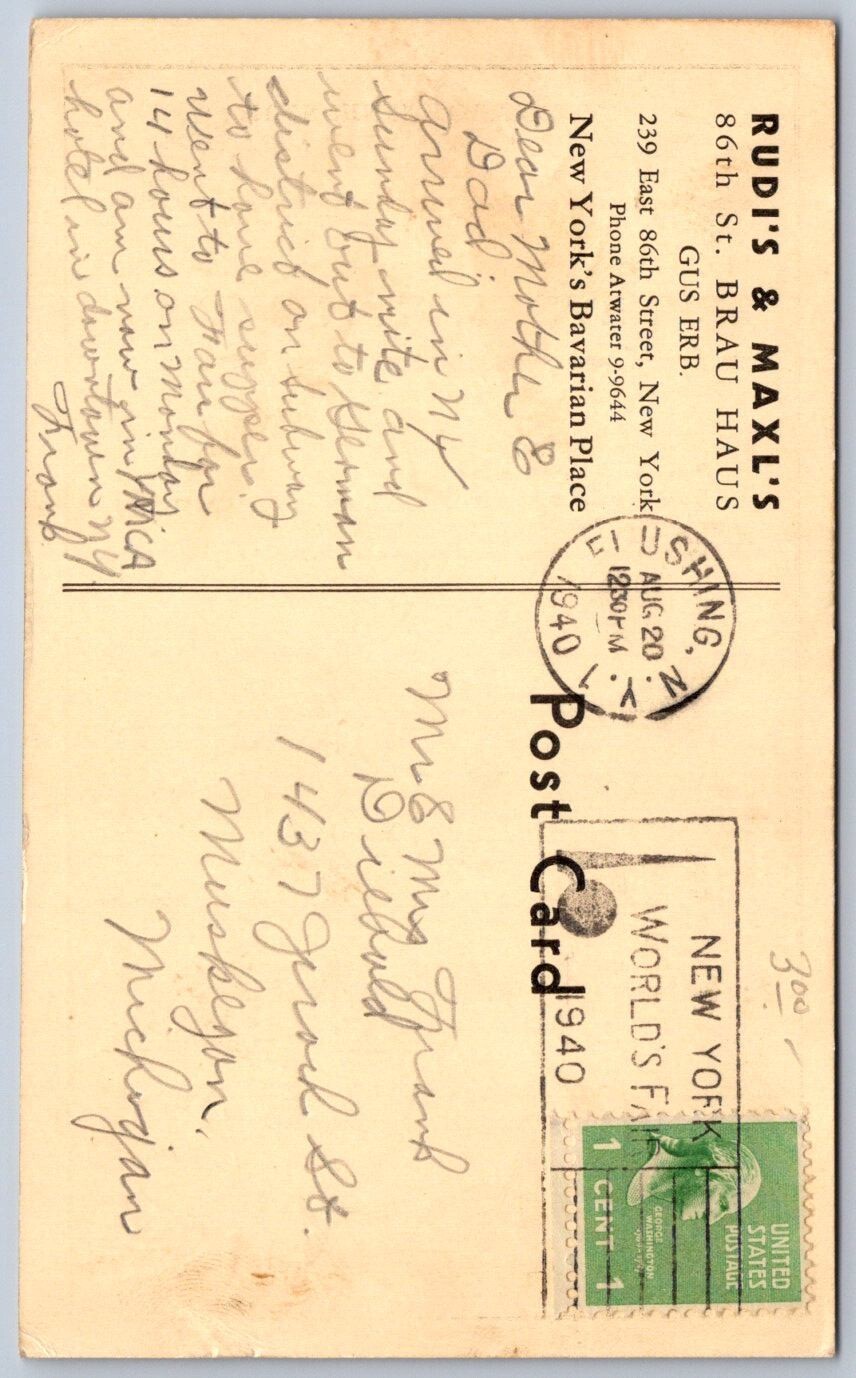 RUDI'S & MAXL'S
86th St. BRAU HAUS
GUS ERB.
239 East 86th Street, New York
Phone Atwater 9-9644
New York's Bavarian Place
Dear Mother &
Dad
Arrived in NY
Sunday nite and
went out to German
district on subway
to have supper.
Went to Fair for
14 hours on Monday
and am now in YMCA
hotel in downtown NY
Frank
FLUSHING, N.Y.
AUG 20
1230 PM
1940
Post Card
NEW YORK
WORLD'S FAIR
1940
300
UNITED
STATES
POSTAGE
GEORGE
WASHINGTON
1 CENT 1
Mr & Mrs Frank
Diebold
1437 Jiroch St.
Muskegon,
Michigan